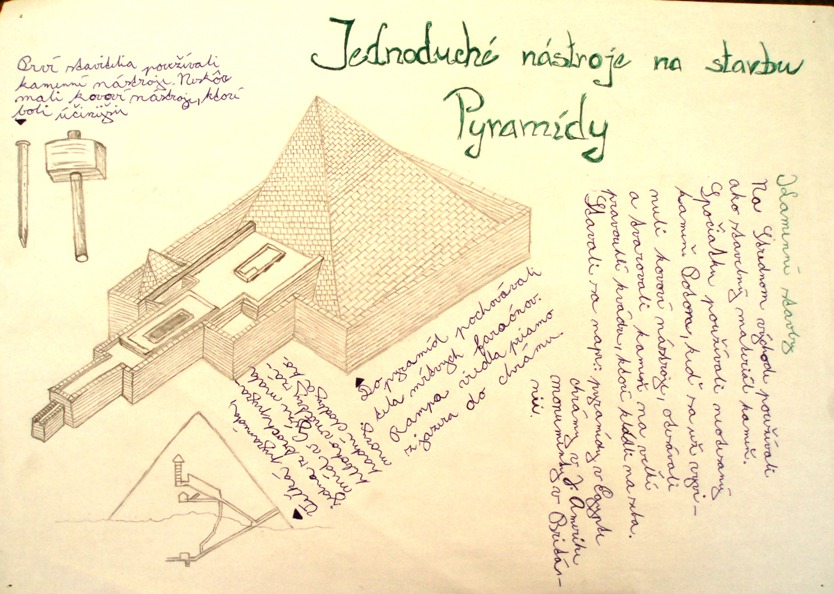 Jednoduché nástroje na stavbu
Pyramídy
Prví stavitelia používali
kamenní nástroje. Neskôr
mali kovoví nástroje, ktoré
boli účinější
Kamenní stavby
Na Strednom východe používali
ako stavebný materiál kameň.
Spočiatku používali neotesaný
kameň. Potom, keď sa už vyvi-
nuli kovoví nástroje, otesávali
a tvarovali kameň na veľkí
pravouhlí kvádre, ktoré kládli na seba.
Stavali sa napr: pyramídy v Egypte
chrámy v J. Amerike
monumenty v Britán-
nii.
Do pyramíd pochovávali
tela mŕtvych faraónov.
Rampa viedla priamo
z jazera do chrámu.
Veľká pyramída,
jedna z troch pyra-
míd v